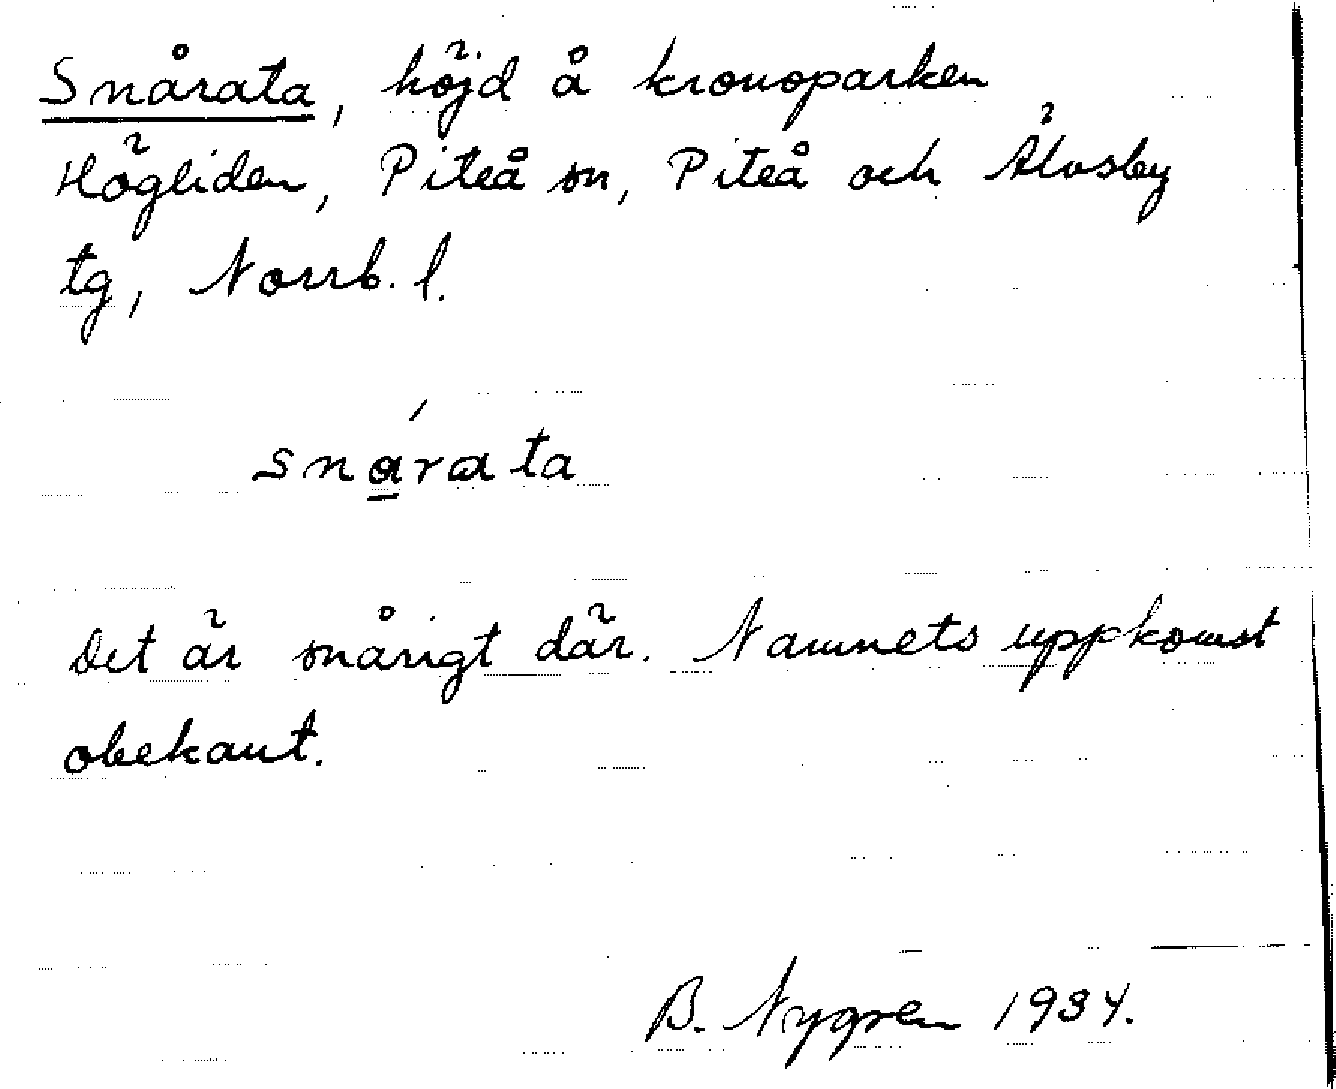 Snårata, höjd å kronoparken
Högliden, Piteå sn, Piteå och Älvsby
tg, Norrb. l.
snárata
Det är snårigt där. Namnets uppkomst
obekant.
B. Nygren 1934.